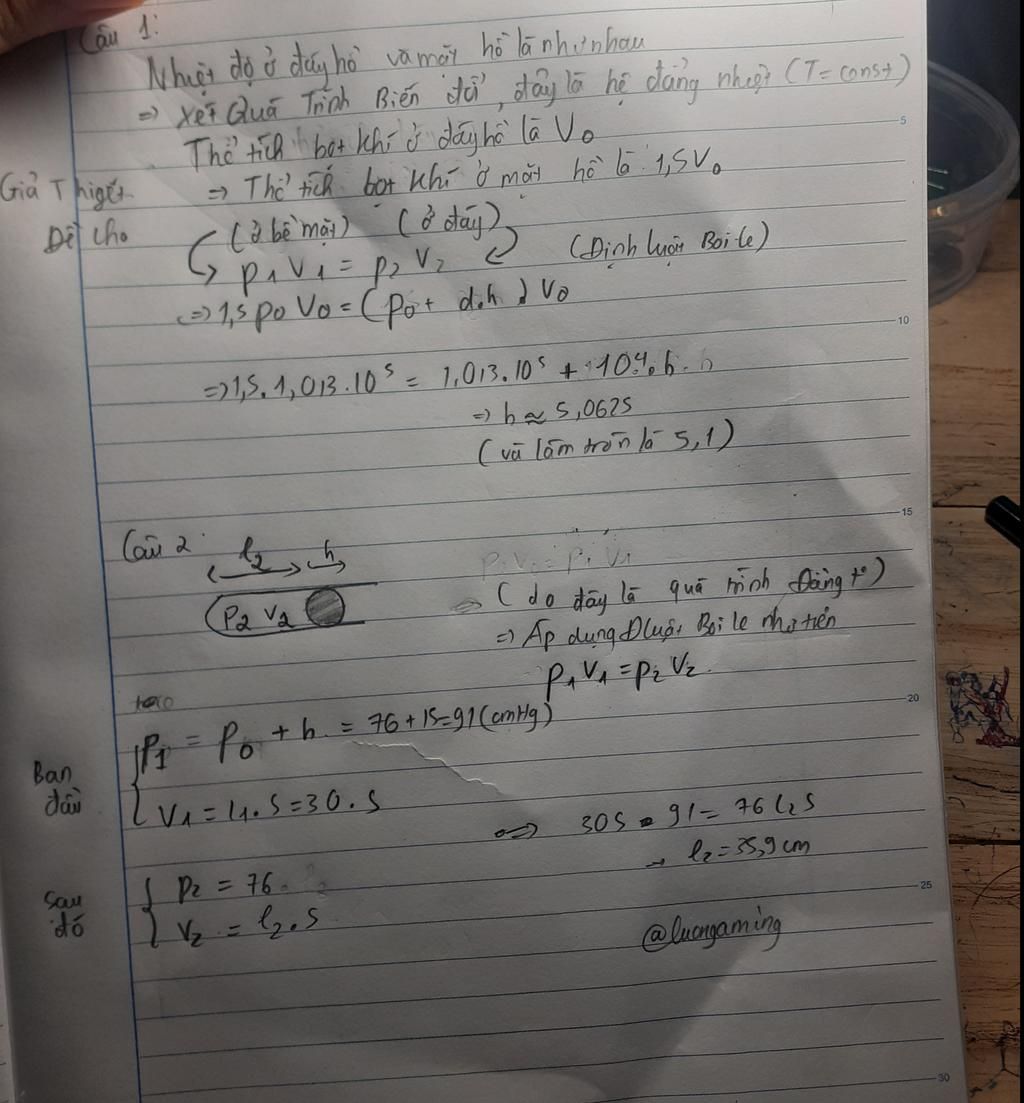 Câu 1:
Nhiệt độ ở đáy hồ và mặt hồ là như nhau
=> Xét Quá Trình Biến đổi, đây là hệ đẳng nhiệt (T = const)
Thể tích bọt khí ở đáy hồ là V₀
Giả Thiết Đề cho
=> Thể tích bọt khí ở mặt hồ là 1,5V₀
(ở bề mặt) (ở đáy)
p₁ V₁ = p₂ V₂ (Định luật Boile)
=> 1,5 p₀ V₀ = (p₀ + d.h) V₀
=> 1,5. 1,013.10⁵ = 1,013.10⁵ + 10⁴.h
=> h ≈ 5,0625
(và làm tròn là 5,1)
Câu 2
l₂ h
P₂ V₂
(do đây là quá trình Đẳng t°)
=> Áp dụng Đluật Boile như trên
p₁ V₁ = p₂ V₂
Ban đầu
p₁ = p₀ + h = 76 + 15 = 91 (cmHg)
V₁ = l₁. S = 30. S
<=> 30S . 91 = 76 l₂ S
→ l₂ = 35,9 cm
Sau đó
p₂ = 76
V₂ = l₂. S
@luongaming
5
10
15
20
25
30